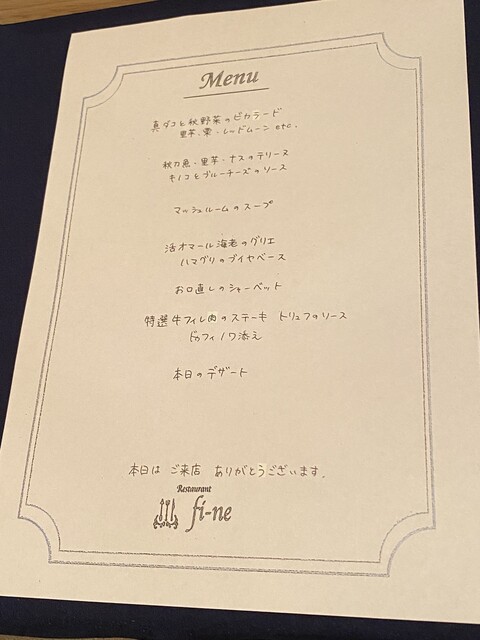 Menu
真ダコと秋野菜のピカラード
里芋、栗・レッドムーン etc.
秋刀魚・里芋・ナスのテリーヌ
キノコとブルーチーズのソース
マッシュルームのスープ
活オマール海老のグリエ
ハマグリのブイヤベース
お口直しのシャーベット
特選牛フィレ肉のステーキ トリュフのソース
ドフィノワ添え
本日のデザート
本日は ご来店 ありがとうございます。
Restaurant
fi-ne